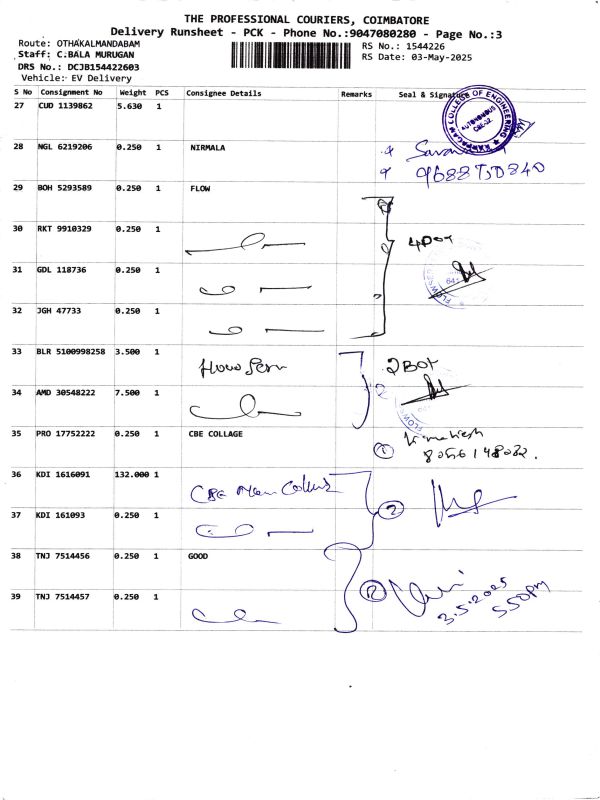 THE PROFESSIONAL COURIERS, COIMBATORE
Delivery Runsheet - PCK - Phone No.:9047080280 - Page No.:3
Route: OTHAKALMANDABAM
Staff: C.BALA MURUGAN
DRS No.: DCJB154422603
Vehicle: EV Delivery
RS No.: 1544226
RS Date: 03-May-2025
S No Consignment No Weight PCS Consignee Details Remarks Seal & Signature
27 CUD 1139862 5.630 1
COLLEGE OF ENGINEERING
AUTONOMOUS
28 NGL 6219206 0.250 1 NIRMALA
29 BOH 5293589 0.250 1 FLOW
30 RKT 9910329 0.250 1
31 GDL 118736 0.250 1
641
32 JGH 47733 0.250 1
33 BLR 5100998258 3.500 1
2 BOX
34 AMD 30548222 7.500 1
35 PRO 17752222 0.250 1 CBE COLLAGE
1
36 KDI 1616091 132.000 1 CBE
37 KDI 161093 0.250 1
2
38 TNJ 7514456 0.250 1 GOOD
3.5.2025
5.50pm
39 TNJ 7514457 0.250 1